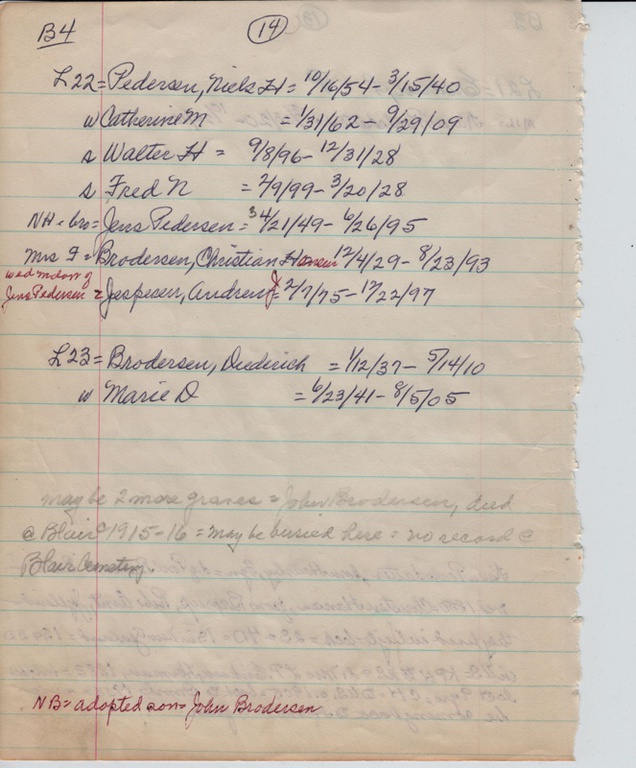 B4 14
L22 = Pedersen, Niels H = 10/16/54 - 3/15/40
w Catherine M = 1/31/62 - 9/29/09
s Walter H = 9/8/96 - 12/31/28
s Fred N = 2/9/99 - 3/20/28
NH - bro = Jens Pedersen = 3 4/21/49 - 6/26/95
Mrs F = Brodersen, Christian Hansen 12/4/29 - 8/23/93
Jens Pedersen = Jespesen, Andrew J = 2/7/75 - 12/22/97
L23 = Brodersen, Diederich = 1/12/37 - 5/14/10
w Marie D = 6/23/41 - 8/5/05
maybe 2 more graves = John Brodersen, died
@ Blair 1915-16 = maybe buried here = no record @
Blair Cemetery
NB = adopted son = John Brodersen